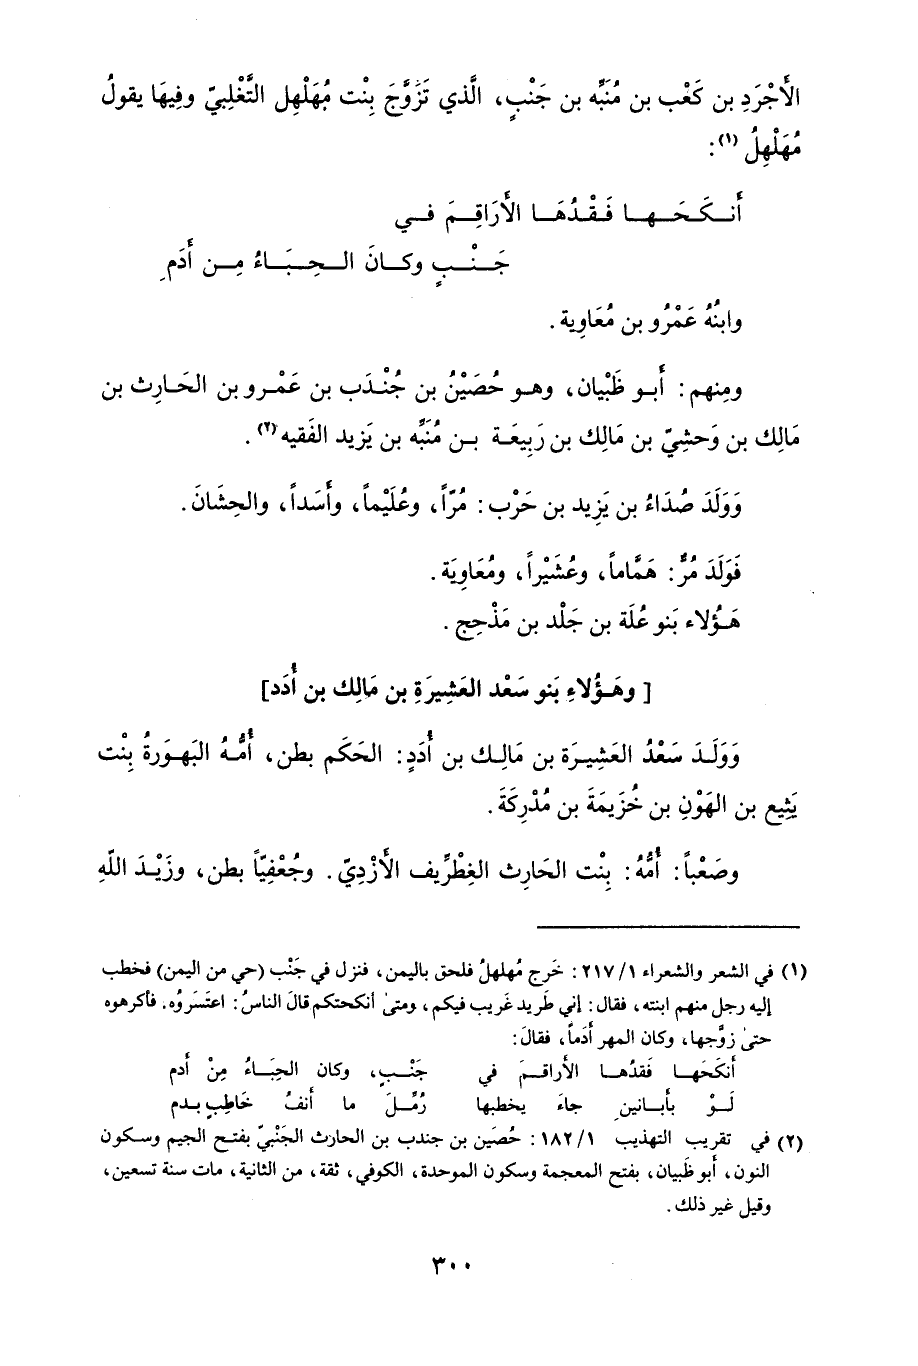 الأَجْرَدِ بن كَعْب بن مُنَبِّه بن جَنْبٍ، الَّذي تَزَوَّجَ بِنْت مُهَلْهِل التَّغْلِبيّ وفِيهَا يقولُ
مُهَلْهِلُ (١):
أَنكَحَها فَقْدُهَا الأَرَاقِمَ في
جَنْبٍ وكانَ الحِبَاءُ مِن أَدَمِ
وابنُهُ عَمْرُو بن مُعَاوِية.
ومِنهم: أَبو ظَبْيان، وهو حُصَيْنُ بن جُنْدَب بن عَمْرو بن الحَارِث بن
مَالِك بن وَحشِيّ بن مَالِك بن رَبِيعَة بن مُنَبِّه بن يَزِيد الفَقيه (٢).
وَوَلَدَ صُدَاءُ بن يَزِيد بن حَرْب: مُرّاً، وعُلَيْماً، وأَسَداً، والحِشَانَ.
فَوَلَدَ مُرٌّ: هَمَّاماً، وعُشَيْراً، ومُعَاوِيَة.
هَؤُلاء بَنو عُلَة بن جَلْد بن مَذْحِج.
[وهَؤُلاءِ بَنو سَعْد العَشِيرَةِ بن مَالِك بن أُدَد]
وَوَلَدَ سَعْدُ العَشِيرَة بن مَالِك بن أُدَدٍ: الحَكَم بطن، أُمُّهُ البَهوَرةُ بِنْت
يَثِيع بن الهَوْنِ بن خُزِيمَةَ بن مُدْرِكَةَ.
وصَعْباً: أُمُّهُ: بِنْت الحَارِث الغِطْرِّيف الأَزْدِيّ. وجُعْفِيّاً بطن، وزَيْدَ اللّه
(١) في الشعر والشعراء ٢١٧/١: خَرج مُهلهلُ فلحق باليمن، فنزل في جَنْب (حي من اليمن) فخطب
إليه رجل منهم ابنته، فقال: إني طَرِيد غَريب فيكم، ومتىٰ أنكحتكم قالَ الناسُ: اعتَسَرُوُه. فأكرهوه
حتىٰ زوَّجها، وكان المهر أَدَماً، فقالَ:
أَنكَحَها فَقدُها الأراقمَ في جَنْبٍ، وكان الحِبَاءُ مِنْ أَدم
لَوْ بأَبانينِ جاءَ يخطبها رُمِّلَ ما أنفُ خَاطِبٍ بدم
(٢) في تقريب التهذيب ١٨٢/١: حُصَين بن جندب بن الحارث الجَنْبيّ بفتح الجيم وسكون
النون، أبو ظَبيان، بفتح المعجمة وسكون الموحدة، الكوفي، ثقة، من الثانية، مات سنة تسعين،
وقيل غير ذلك.
٣٠٠